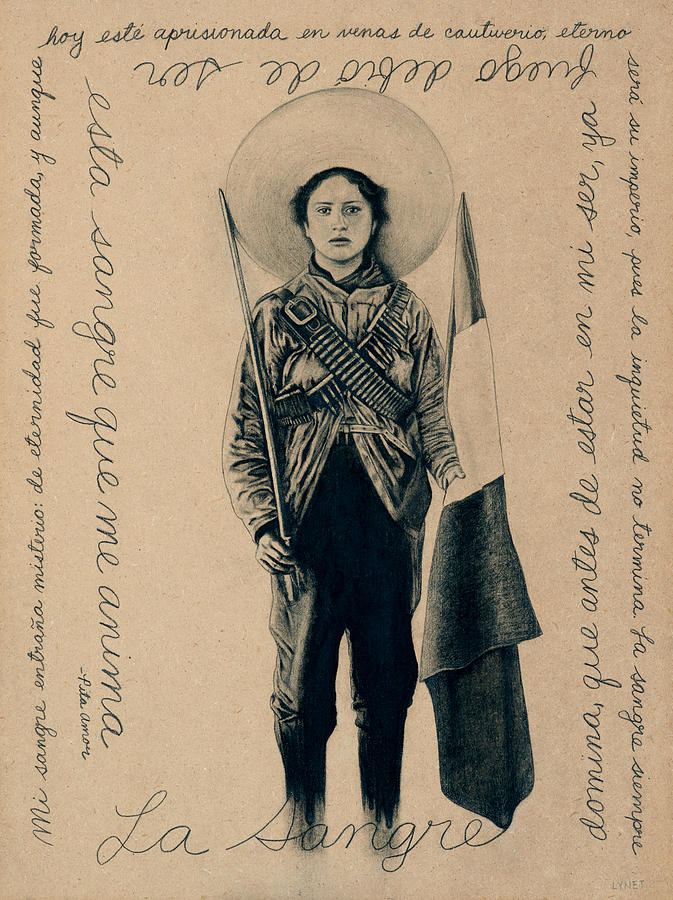 Mi sangre entraña misterio: de eternidad fue formada, y aunque
hoy esté aprisionada en venas de cautiverio, eterno
será su imperio, pues la inquietud no termina. La sangre siempre
domina, que antes de estar en mi ser, ya
fuego debió de ser
esta sangre que me anima
-Pita Amor
La Sangre
LYNET